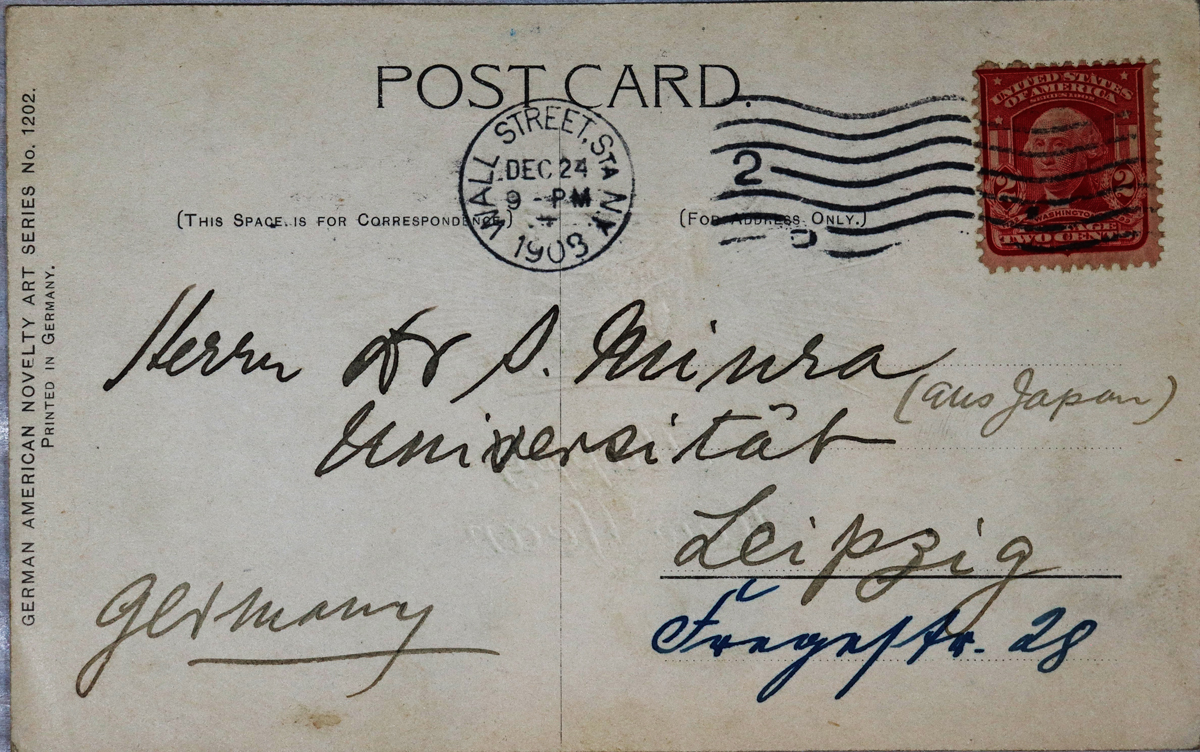 POST CARD.
WALL STREET, STA. N.Y.
DEC 24
9 - PM
1908
2
D
UNITED STATES
OF AMERICA
SERIES 1902
2 2
WASHINGTON
TWO CENTS
(THIS SPACE IS FOR CORRESPONDENCE.)
(FOR ADDRESS ONLY.)
Herrn Dr S. Miura
(aus Japan)
Universität
Leipzig
Germany
Fregestr. 28
GERMAN AMERICAN NOVELTY ART SERIES No. 1202.
PRINTED IN GERMANY.